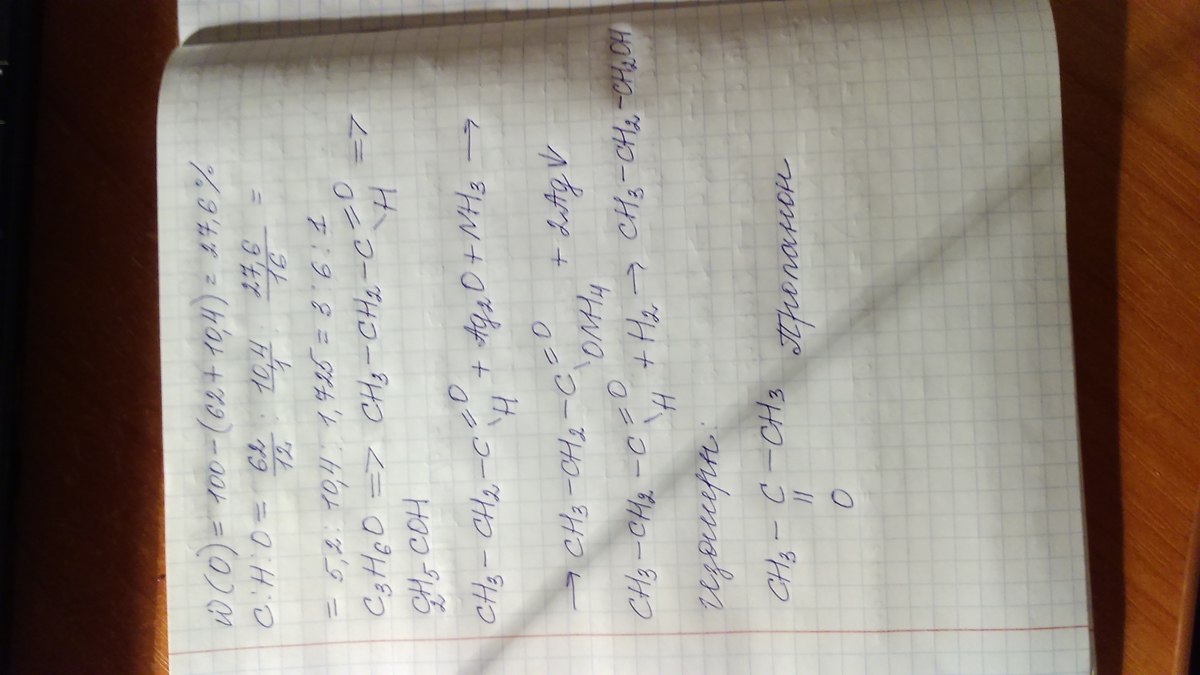 ω(O) = 100 - (62 + 10,4) = 27,6%
C : H : O = 62/12 : 10,4/1 : 27,6/16 =
= 5,2 : 10,4 : 1,725 = 3 : 6 : 1
C3H6O => CH3 - CH2 - C =O \H =>
C2H5COH
CH3 - CH2 - C =O \H + Ag2O + NH3 →
→ CH3 - CH2 - C =O \ONH4 + 2Ag↓
CH3 - CH2 - C =O \H + H2 → CH3 - CH2 - CH2OH
изомеры:
CH3 - C - CH3 Пропанон
||
O